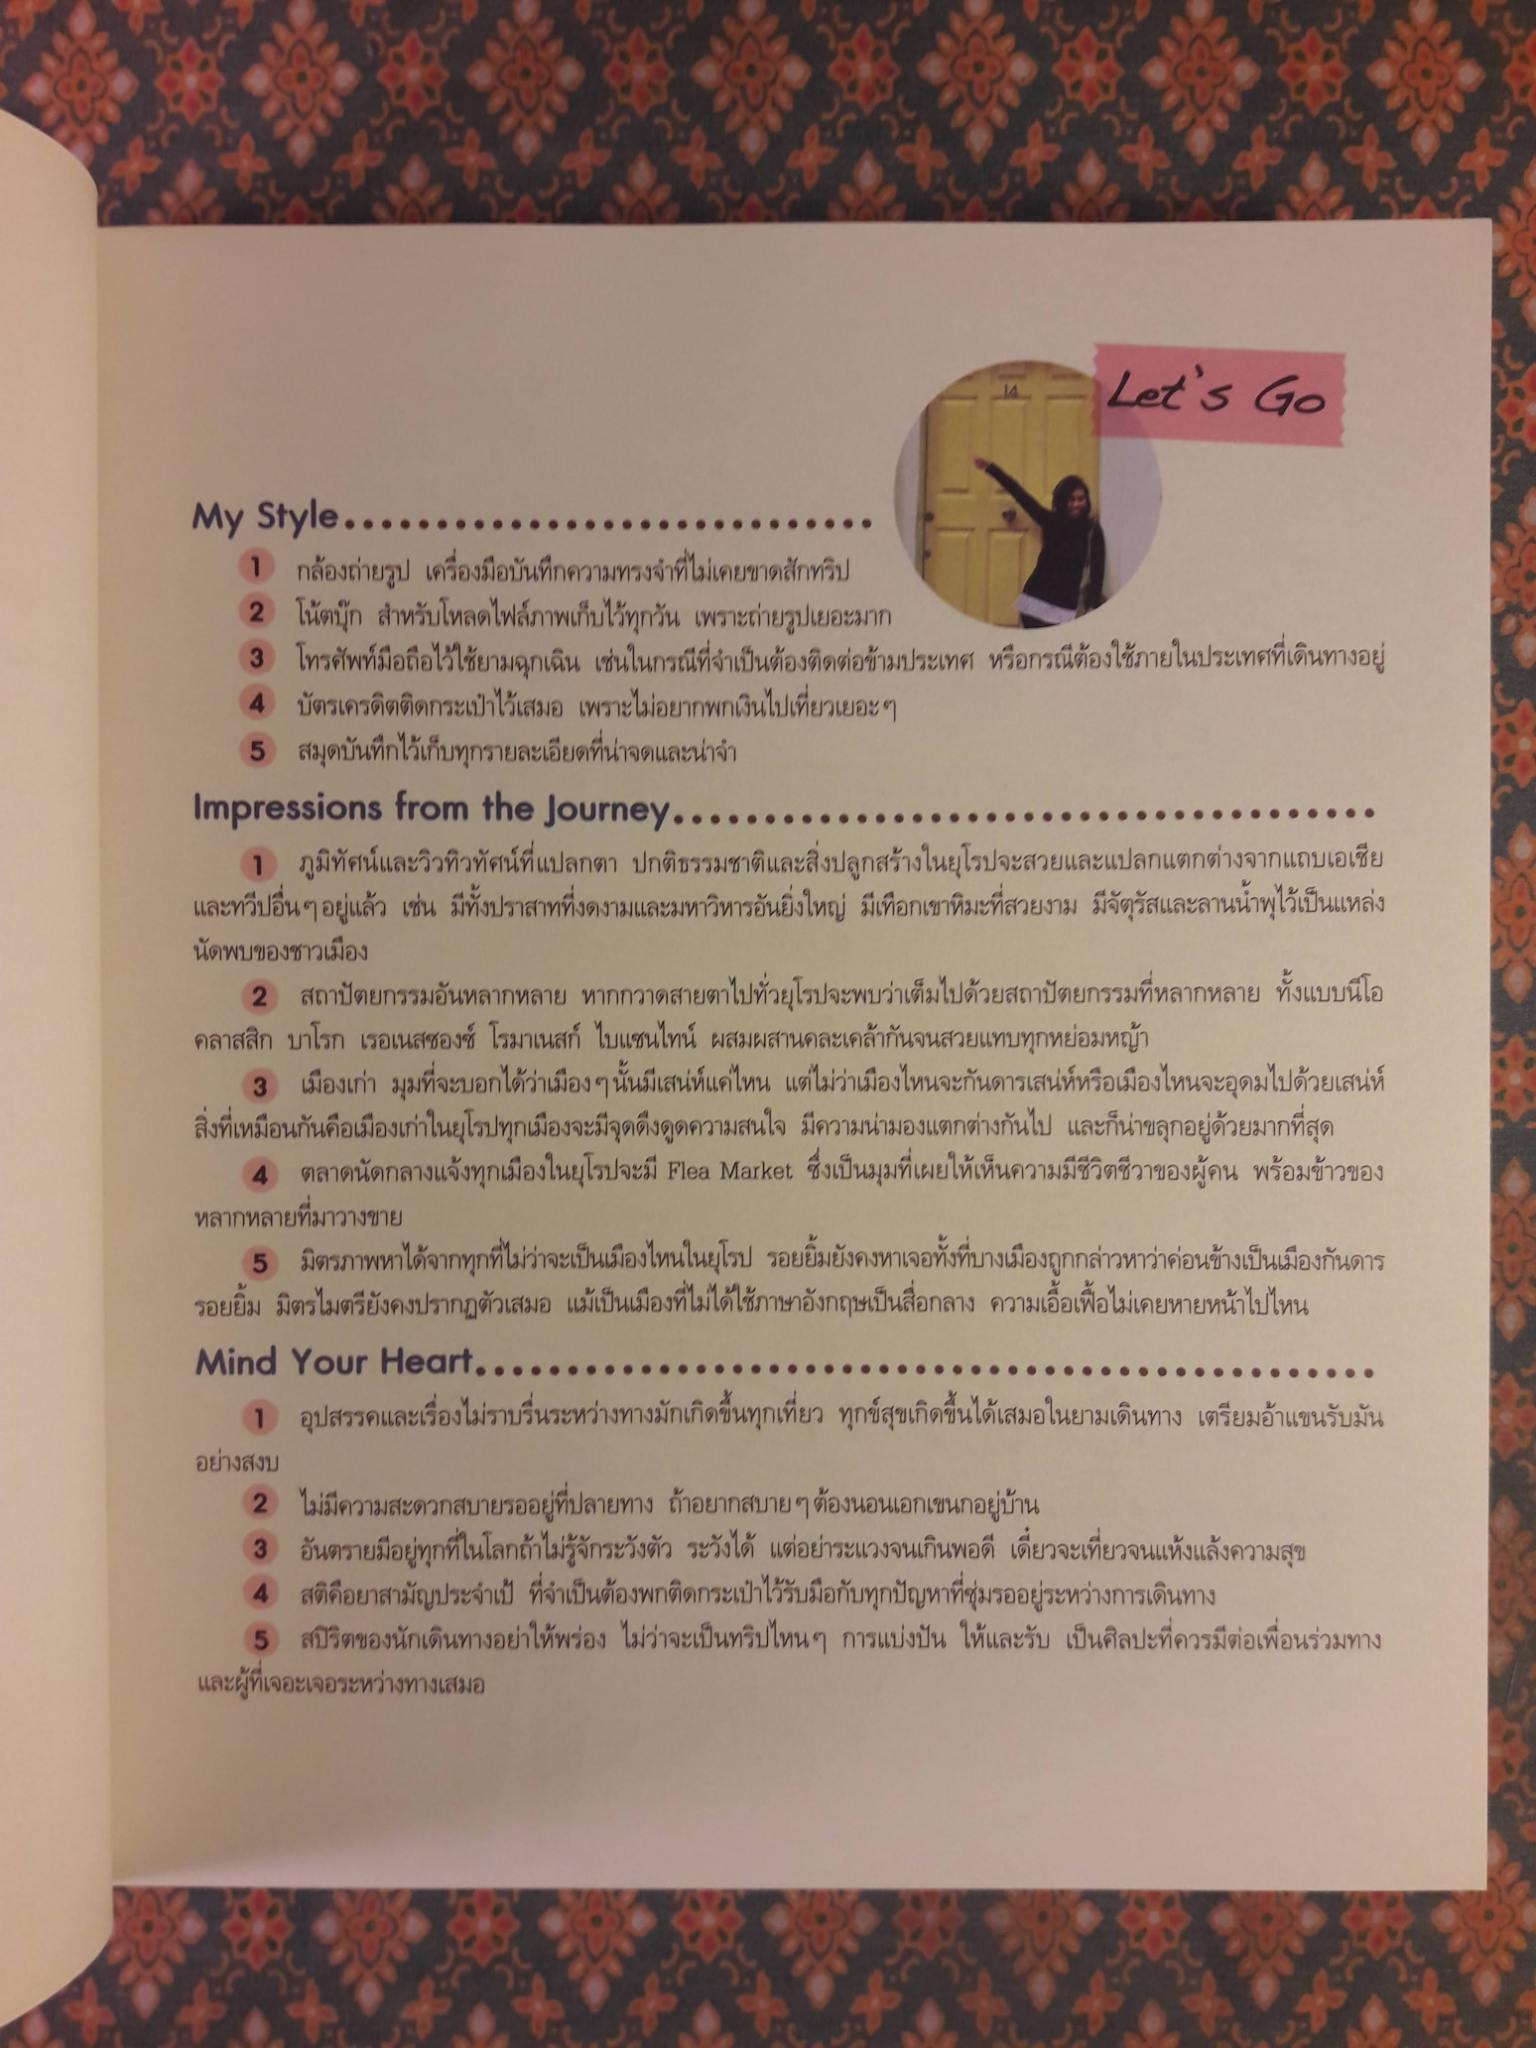 Let's Go
14
My Style
1 กล้องถ่ายรูป เครื่องมือบันทึกความทรงจำที่ไม่เคยขาดสักทริป
2 โน้ตบุ๊ก สำหรับโหลดไฟล์ภาพเก็บไว้ทุกวัน เพราะถ่ายรูปเยอะมาก
3 โทรศัพท์มือถือไว้ใช้ยามฉุกเฉิน เช่นในกรณีที่จำเป็นต้องติดต่อข้ามประเทศ หรือกรณีต้องใช้ภายในประเทศที่เดินทางอยู่
4 บัตรเครดิตติดกระเป๋าไว้เสมอ เพราะไม่อยากพกเงินไปเที่ยวเยอะๆ
5 สมุดบันทึกไว้เก็บทุกรายละเอียดที่น่าจดและน่าจำ
Impressions from the Journey
1 ภูมิทัศน์และวิวทิวทัศน์ที่แปลกตา ปกติธรรมชาติและสิ่งปลูกสร้างในยุโรปจะสวยและแปลกแตกต่างจากแถบเอเชีย
และทวีปอื่นๆอยู่แล้ว เช่น มีทั้งปราสาทที่งดงามและมหาวิหารอันยิ่งใหญ่ มีเทือกเขาหิมะที่สวยงาม มีจัตุรัสและลานน้ำพุไว้เป็นแหล่ง
นัดพบของชาวเมือง
2 สถาปัตยกรรมอันหลากหลาย หากกวาดสายตาไปทั่วยุโรปจะพบว่าเต็มไปด้วยสถาปัตยกรรมที่หลากหลาย ทั้งแบบนีโอ
คลาสสิก บาโรก เรอเนสซองซ์ โรมาเนสก์ ไบแซนไทน์ ผสมผสานคละเคล้ากันจนสวยแทบทุกหย่อมหญ้า
3 เมืองเก่า มุมที่จะบอกได้ว่าเมืองๆนั้นมีเสน่ห์แค่ไหน แต่ไม่ว่าเมืองไหนจะกันดารเสน่ห์หรือเมืองไหนจะอุดมไปด้วยเสน่ห์
สิ่งที่เหมือนกันคือเมืองเก่าในยุโรปทุกเมืองจะมีจุดดึงดูดความสนใจ มีความน่ามองแตกต่างกันไป และก็น่าขลุกอยู่ด้วยมากที่สุด
4 ตลาดนัดกลางแจ้งทุกเมืองในยุโรปจะมี Flea Market ซึ่งเป็นมุมที่เผยให้เห็นความมีชีวิตชีวาของผู้คน พร้อมข้าวของ
หลากหลายที่มาวางขาย
5 มิตรภาพหาได้จากทุกที่ไม่ว่าจะเป็นเมืองไหนในยุโรป รอยยิ้มยังคงหาเจอทั้งที่บางเมืองถูกกล่าวหาว่าค่อนข้างเป็นเมืองกันดาร
รอยยิ้ม มิตรไมตรียังคงปรากฏตัวเสมอ แม้เป็นเมืองที่ไม่ได้ใช้ภาษาอังกฤษเป็นสื่อกลาง ความเอื้อเฟื้อไม่เคยหายหน้าไปไหน
Mind Your Heart
1 อุปสรรคและเรื่องไม่ราบรื่นระหว่างทางมักเกิดขึ้นทุกเที่ยว ทุกข์สุขเกิดขึ้นได้เสมอในยามเดินทาง เตรียมอ้าแขนรับมัน
อย่างสงบ
2 ไม่มีความสะดวกสบายรออยู่ที่ปลายทาง ถ้าอยากสบายๆต้องนอนเอกเขนกอยู่บ้าน
3 อันตรายมีอยู่ทุกที่ในโลกถ้าไม่รู้จักระวังตัว ระวังได้ แต่อย่าระแวงจนเกินพอดี เดี๋ยวจะเที่ยวจนแห้งแล้งความสุข
4 สติคือยาสามัญประจำเป้ ที่จำเป็นต้องพกติดกระเป๋าไว้รับมือกับทุกปัญหาที่ซุ่มรออยู่ระหว่างการเดินทาง
5 สปิริตของนักเดินทางอย่าให้พร่อง ไม่ว่าจะเป็นทริปไหนๆ การแบ่งปัน ให้และรับ เป็นศิลปะที่ควรมีต่อเพื่อนร่วมทาง
และผู้ที่เจอะเจอระหว่างทางเสมอ